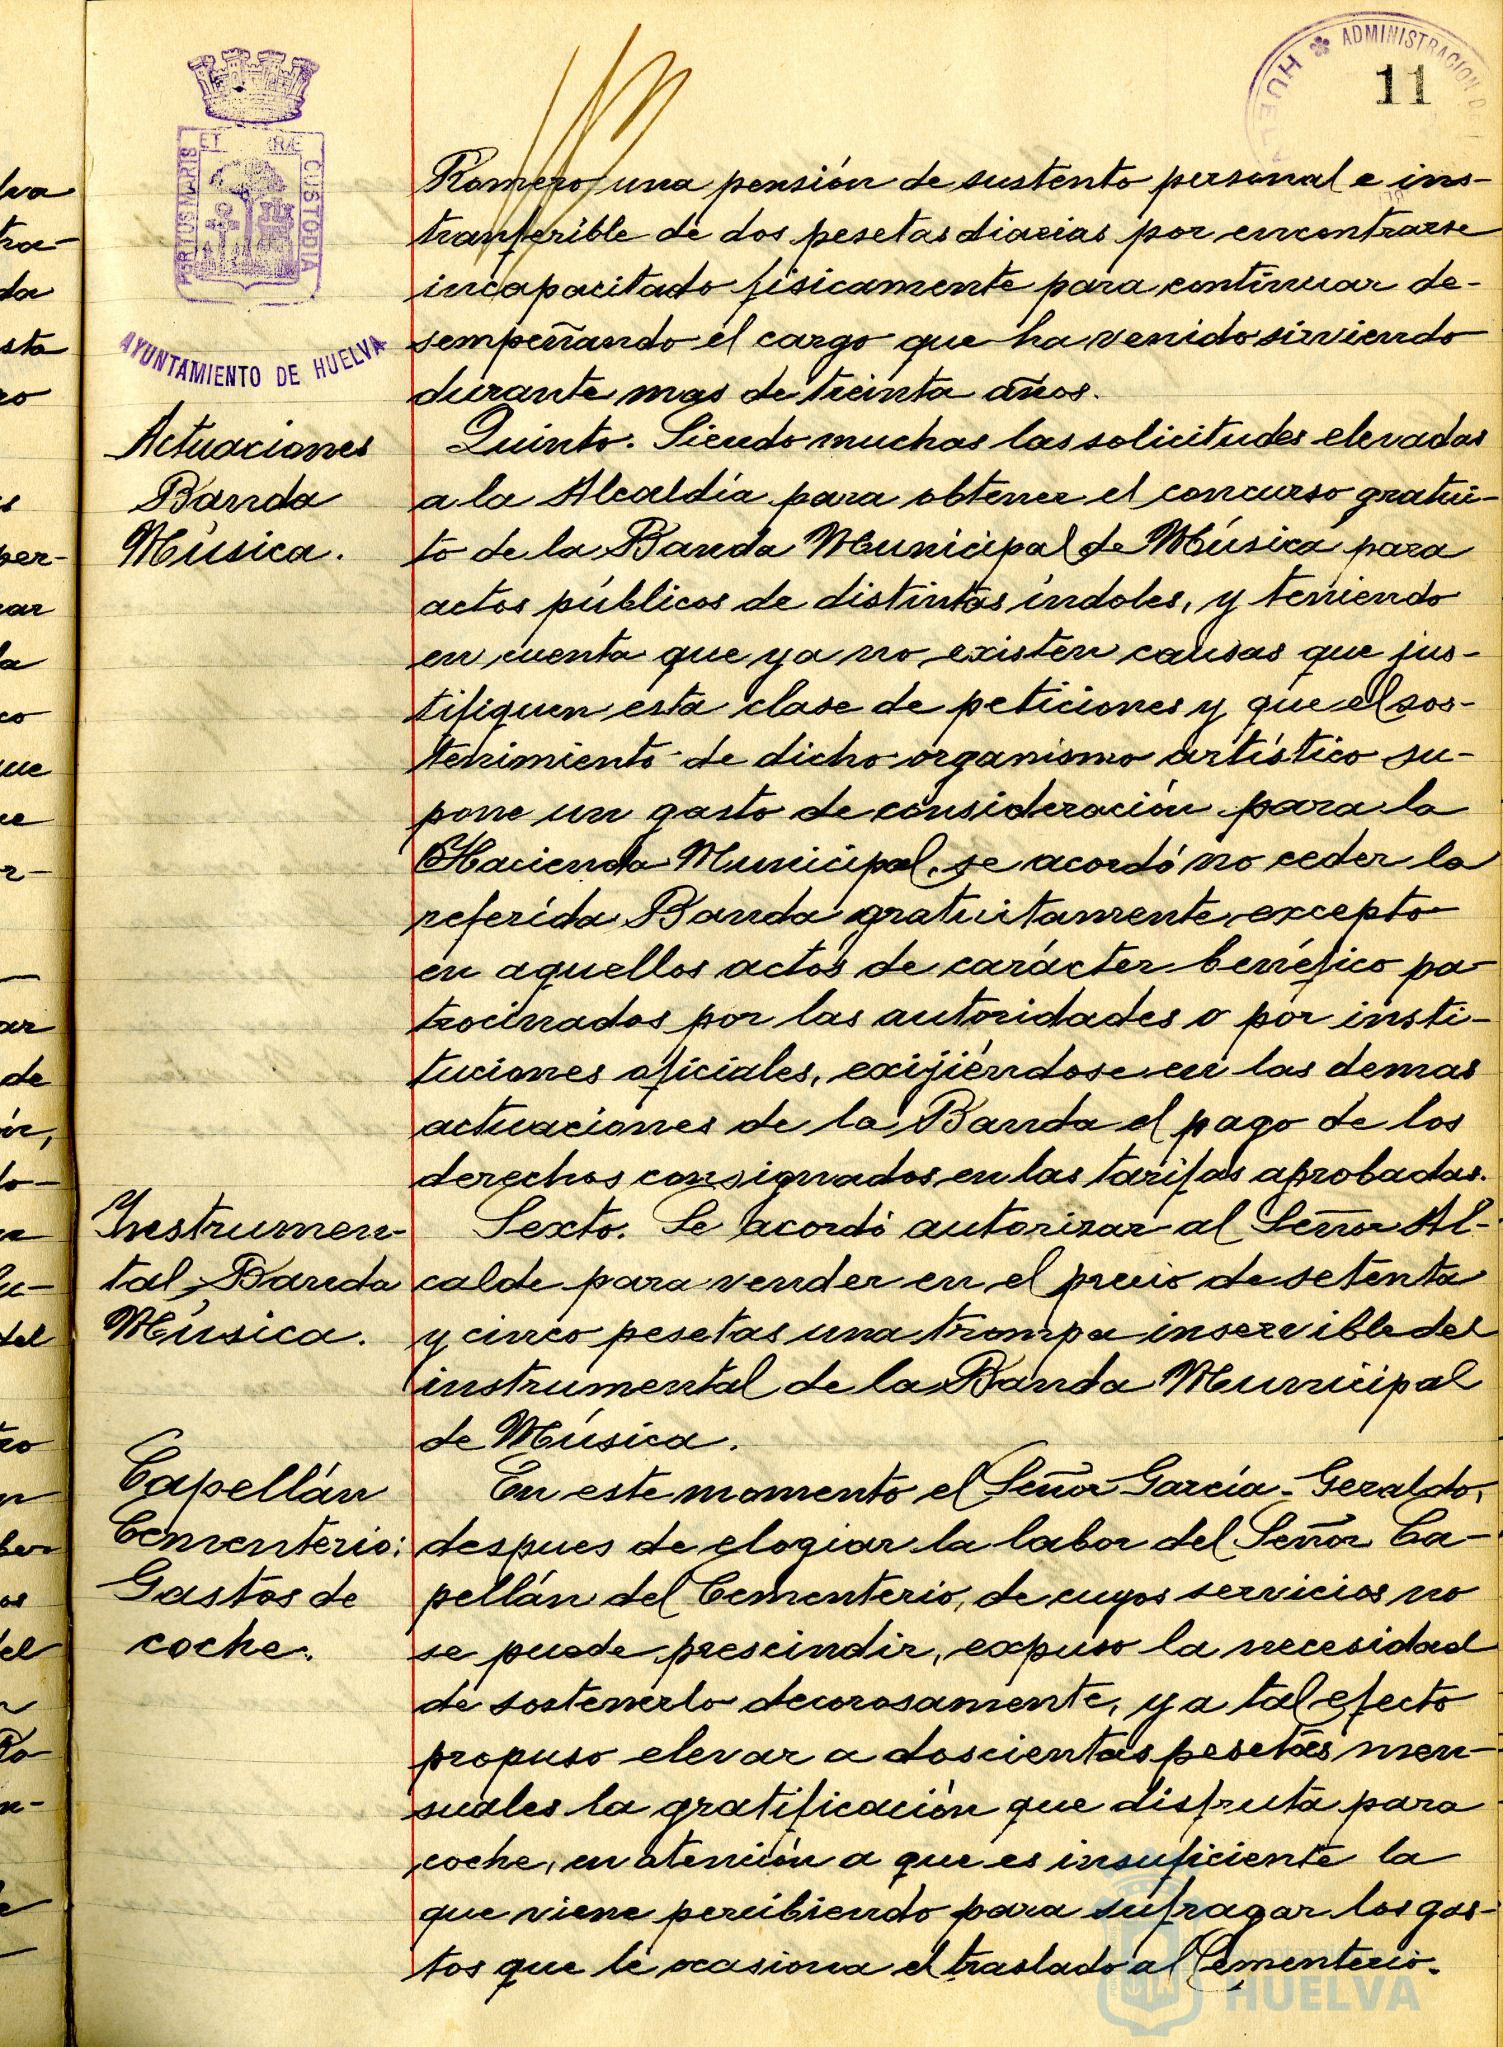 ADMINISTRACION DE
HUELVA
11
PORTUS MARIS ET TERRÆ CUSTODIA
AYUNTAMIENTO DE HUELVA
Romero una pensión de sustento personal e ins-
tranferible de dos pesetas diarias por encontrarse
incapacitado fisicamente para continuar de-
sempeñando el cargo que ha venido sirviendo
durante mas de treinta años.
Actuaciones
Banda
Música.
Quinto. Siendo muchas las solicitudes elevadas
a la Alcaldía para obtener el concurso gratui-
to de la Banda Municipal de Música para
actos públicos de distintas índoles, y teniendo
en cuenta que ya no existen causas que jus-
tifiquen esta clase de peticiones y que el sos-
tenimiento de dicho organismo artístico su-
pone un gasto de consideración para la
Hacienda Municipal, se acordó no ceder la
referida Banda gratuitamente, excepto
en aquellos actos de carácter benéfico pa-
trocinados por las autoridades o por insti-
tuciones oficiales, exijiéndose en las demas
actuaciones de la Banda el pago de los
derechos consignados en las tarifas aprobadas.
Instrumen-
tal Banda
Música.
Sexto. Se acordó autorizar al Señor Al-
calde para vender en el precio de setenta
y cinco pesetas una trompa inservible del
instrumental de la Banda Municipal
de Música.
Capellán
Cementerio:
Gastos de
coche.
En este momento el Señor García-Geraldo,
despues de elogiar la labor del Señor Ca-
pellán del Cementerio, de cuyos servicios no
se puede prescindir, expuso la necesidad
de sostenerlo decorosamente, y a tal efecto
propuso elevar a doscientas pesetas men-
suales la gratificación que disfruta para
coche, en atención a que es insuficiente la
que viene percibiendo para sufragar los gas-
tos que le ocasiona el traslado al Cementerio.
HUELVA